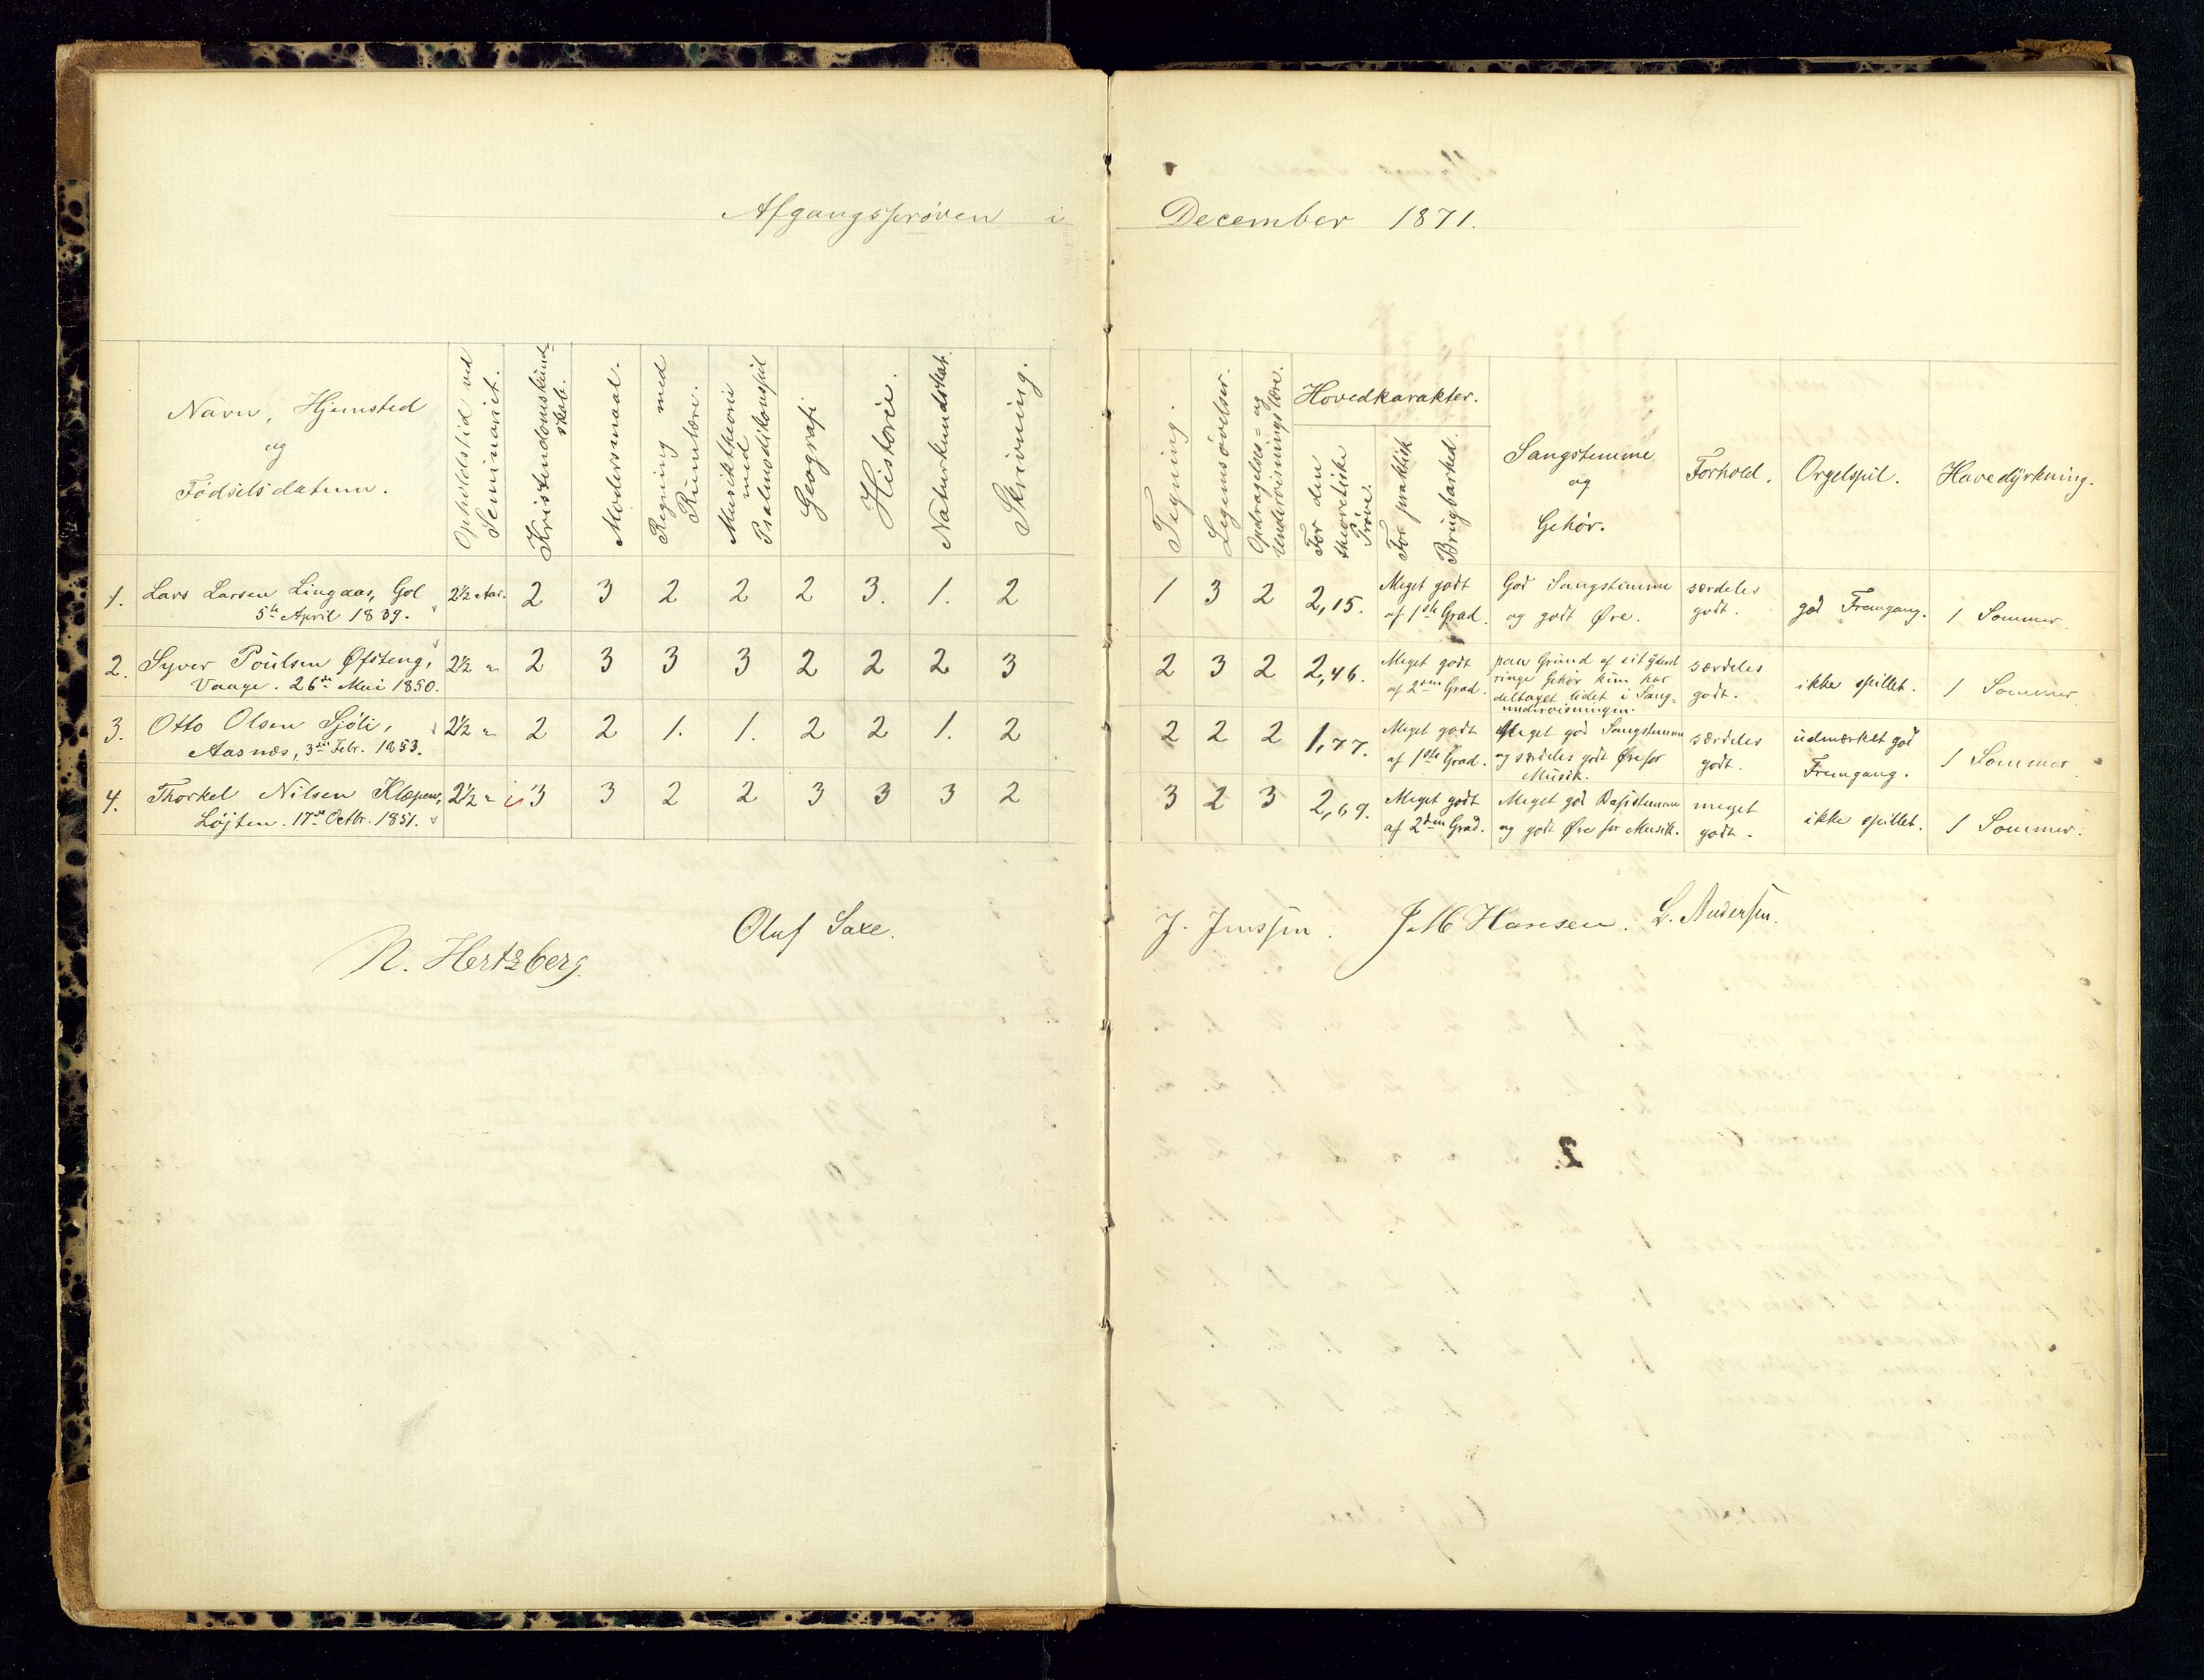 Afgangsprøven i December 1871.
Navn, Hjemsted
og
Fødselsdatum.
Opholdstid ved
Seminariet.
Kristendomskund-
skab.
Modersmaal.
Regning med
Rumlære.
Musiktheori
med
Psalmodikonspil
Geografi
Historie.
Naturkundskab.
Skrivning.
Tegning.
Legemsøvelser.
Opdragelses- og
Undervisningslære.
Hovedkarakter.
For den
theoretiske
Prøve.
For praktisk
Brugbarhed.
Sangstemme
og
Gehør.
Forhold.
Orgelspil.
Havedyrkning.
1. Lars Larsen Lingaas, Gol 2½ Aar. 2 3 2 2 2 3. 1. 2 1 3 2 2,15. Meget godt God Sangstemme særdeles god Fremgang. 1 Sommer.
5te April 1839. af 1ste Grad. og godt Øre. godt.
2. Syver Poulsen Øfsteng, 2½ " 2 3 3 3 2 2 2 3 2 3 2 2,46. Meget godt paa Grund af sit yderst særdeles ikke spillet. 1 Sommer
Vaage. 26de Mai 1850. af 2den Grad. ringe Gehør kun har godt.
deltaget lidet i Sang-
undervisningen.
3. Otto Olsen Sjøli, 2½ " 2 2 1. 1. 2 2 1. 2 2 2 2 1,77. Meget godt Meget god Sangstemme særdeles udmærket god 1 Sommer
Aasnæs, 3die Febr. 1853. af 1ste Grad. og særdeles godt Øre for godt. Fremgang.
Musik.
4. Thorkel Nilsen Klæpen, 2½ " 3 3 2 2 3 3 3 2 3 2 3 2,69. Meget godt Meget god Basstemme meget ikke spillet. 1 Sommer.
Løjten. 17de Octbr. 1851. af 2den Grad. og godt Øre for Musik. godt.
N. Hertzberg. Oluf Saxe. J. Jenssen. J. M Hansen. L. Andersen.